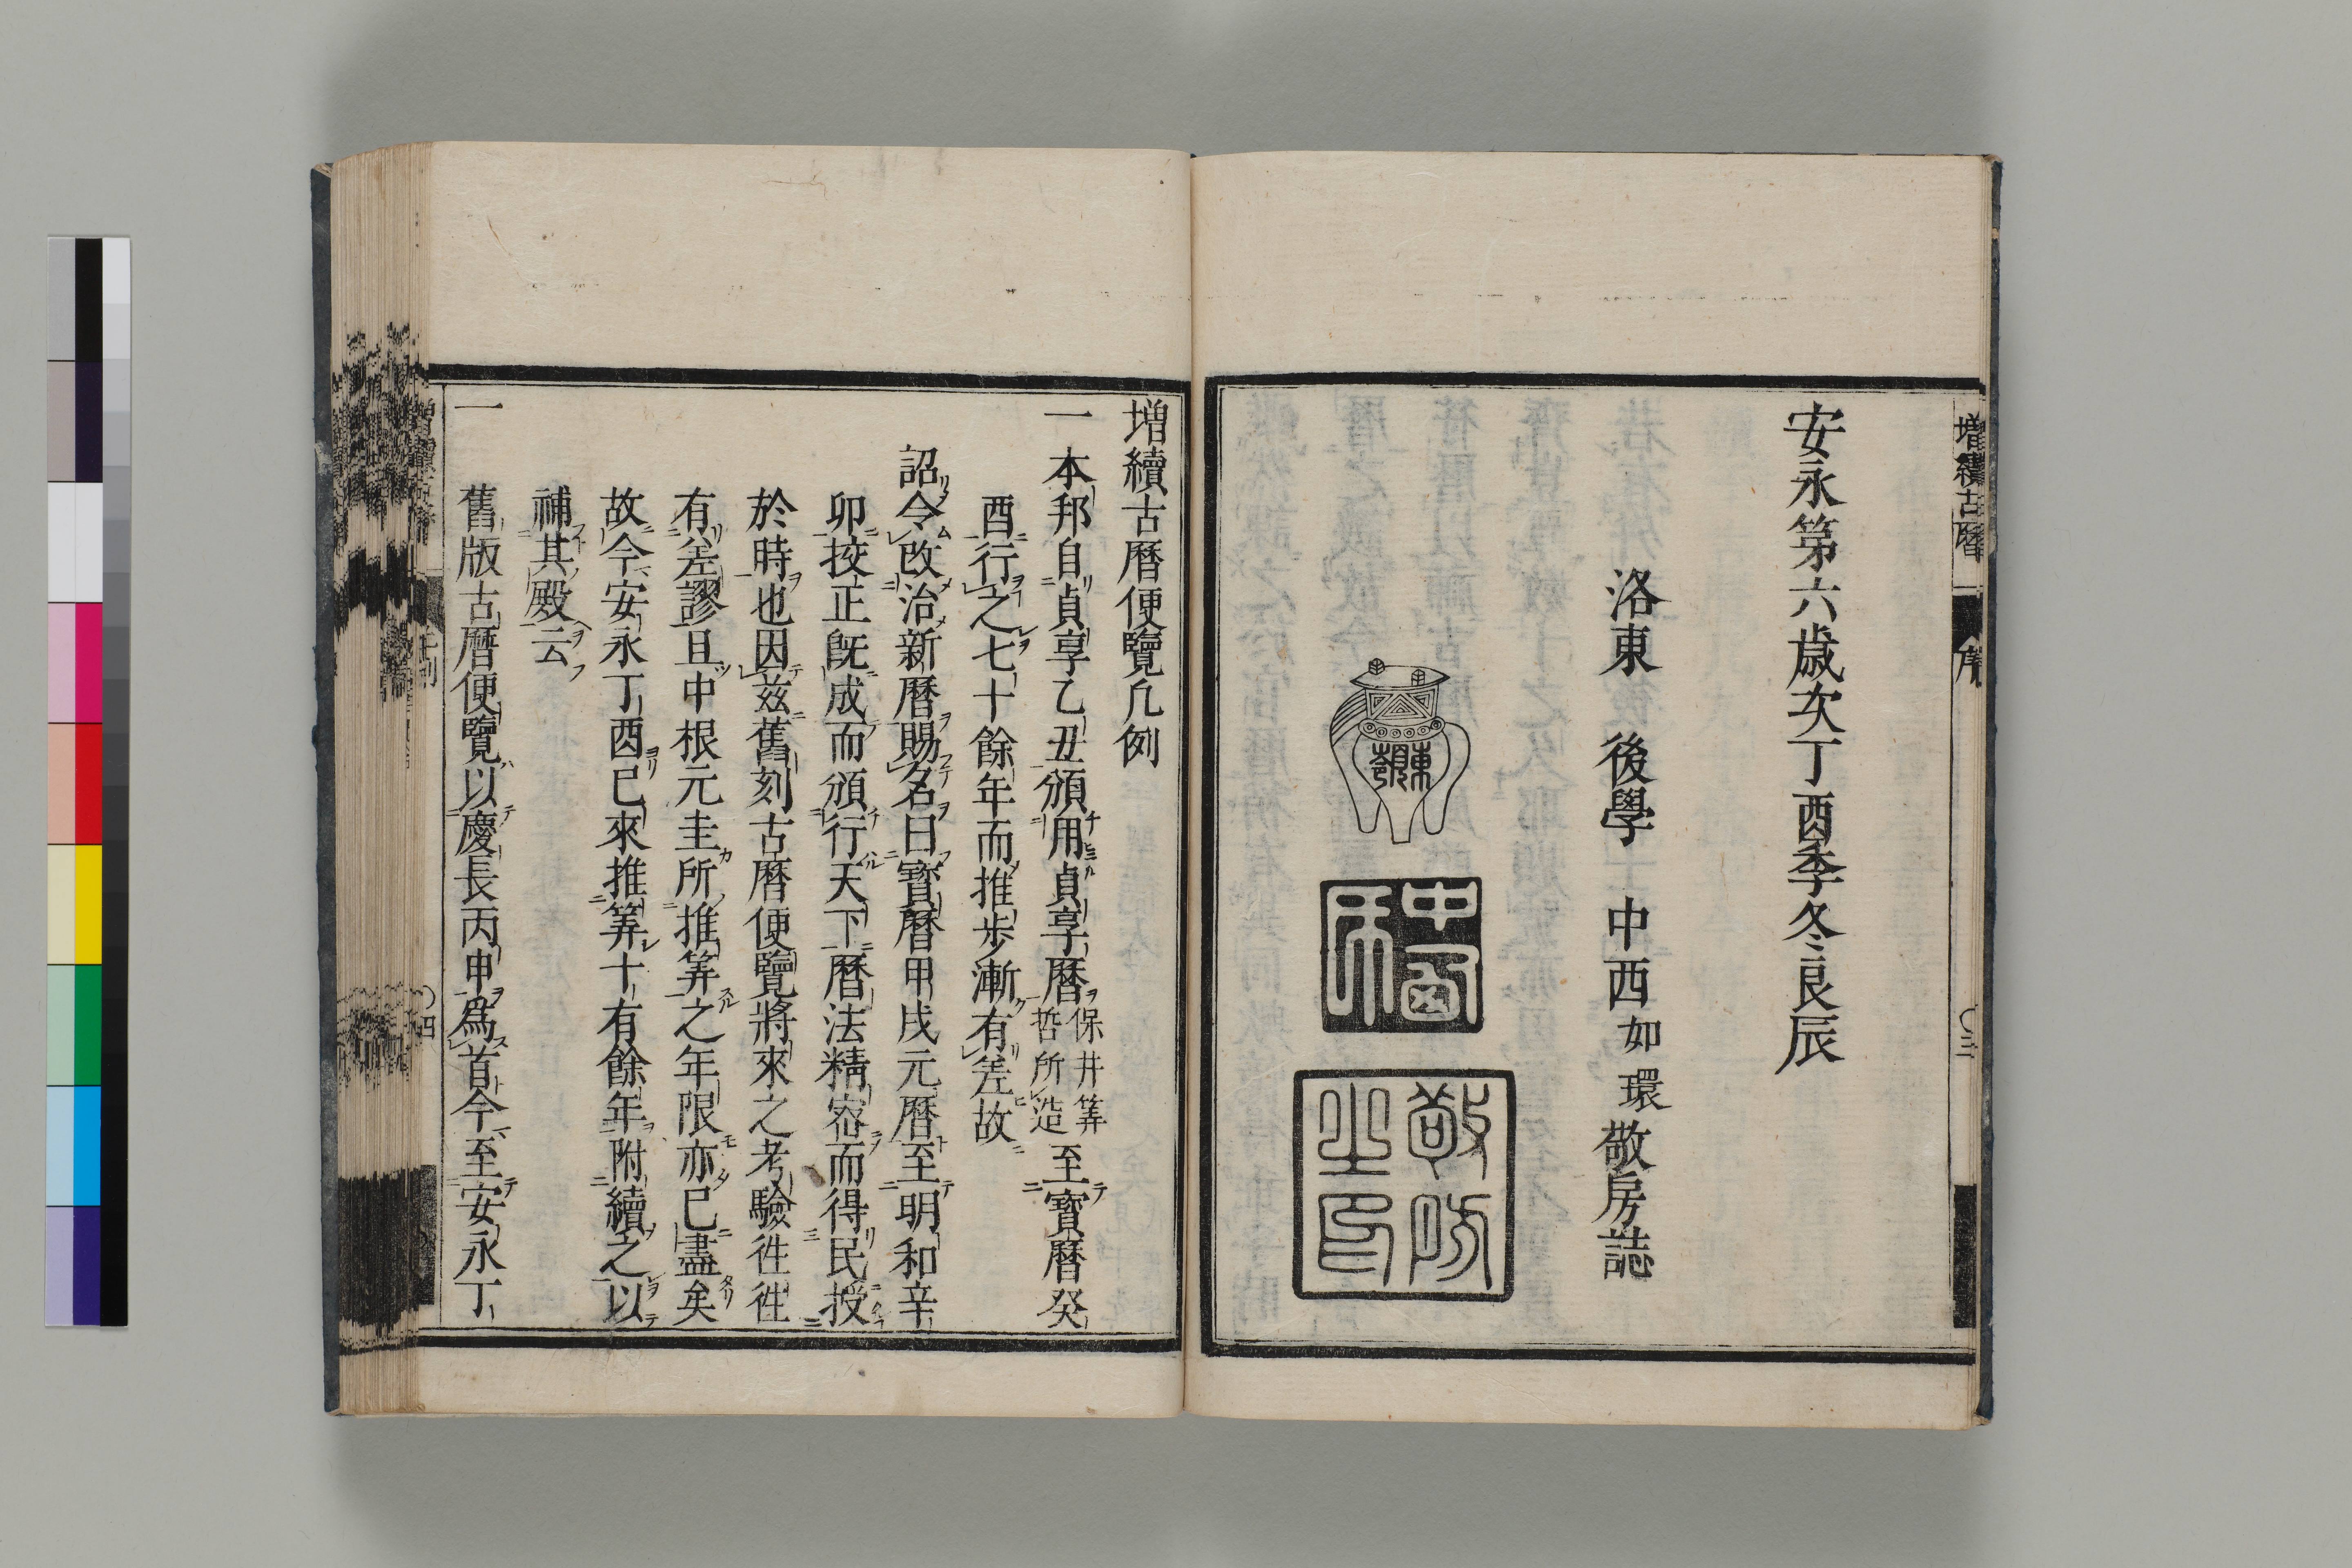 増續古暦 序 〇三
安永第六歳次丁酉季冬良辰
洛東 後學 中西如環敬房誌
東嶺
敬房之印
増續古暦便覽凡例
一本邦自貞享乙丑頒用貞享暦保井筭哲所造至寶暦癸
酉行之七十餘年而推歩漸有差故
詔令改治新暦賜名曰寶暦甲戌元暦至明和辛
卯挍正既成而頒行天下暦法精宻而得民授
於時也因茲舊刻古暦便覽將來之考驗徃徃
有差謬且中根元圭所推筭之年限亦已盡矣
故今安永丁酉已來推筭十有餘年附續之以
補其殿云
一舊版古暦便覽以慶長丙申爲首今至安永丁